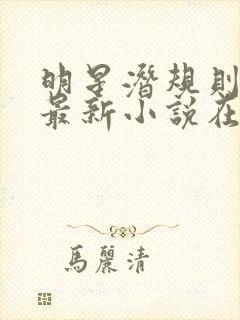 明星潛規則
最新小說在
馬麗清